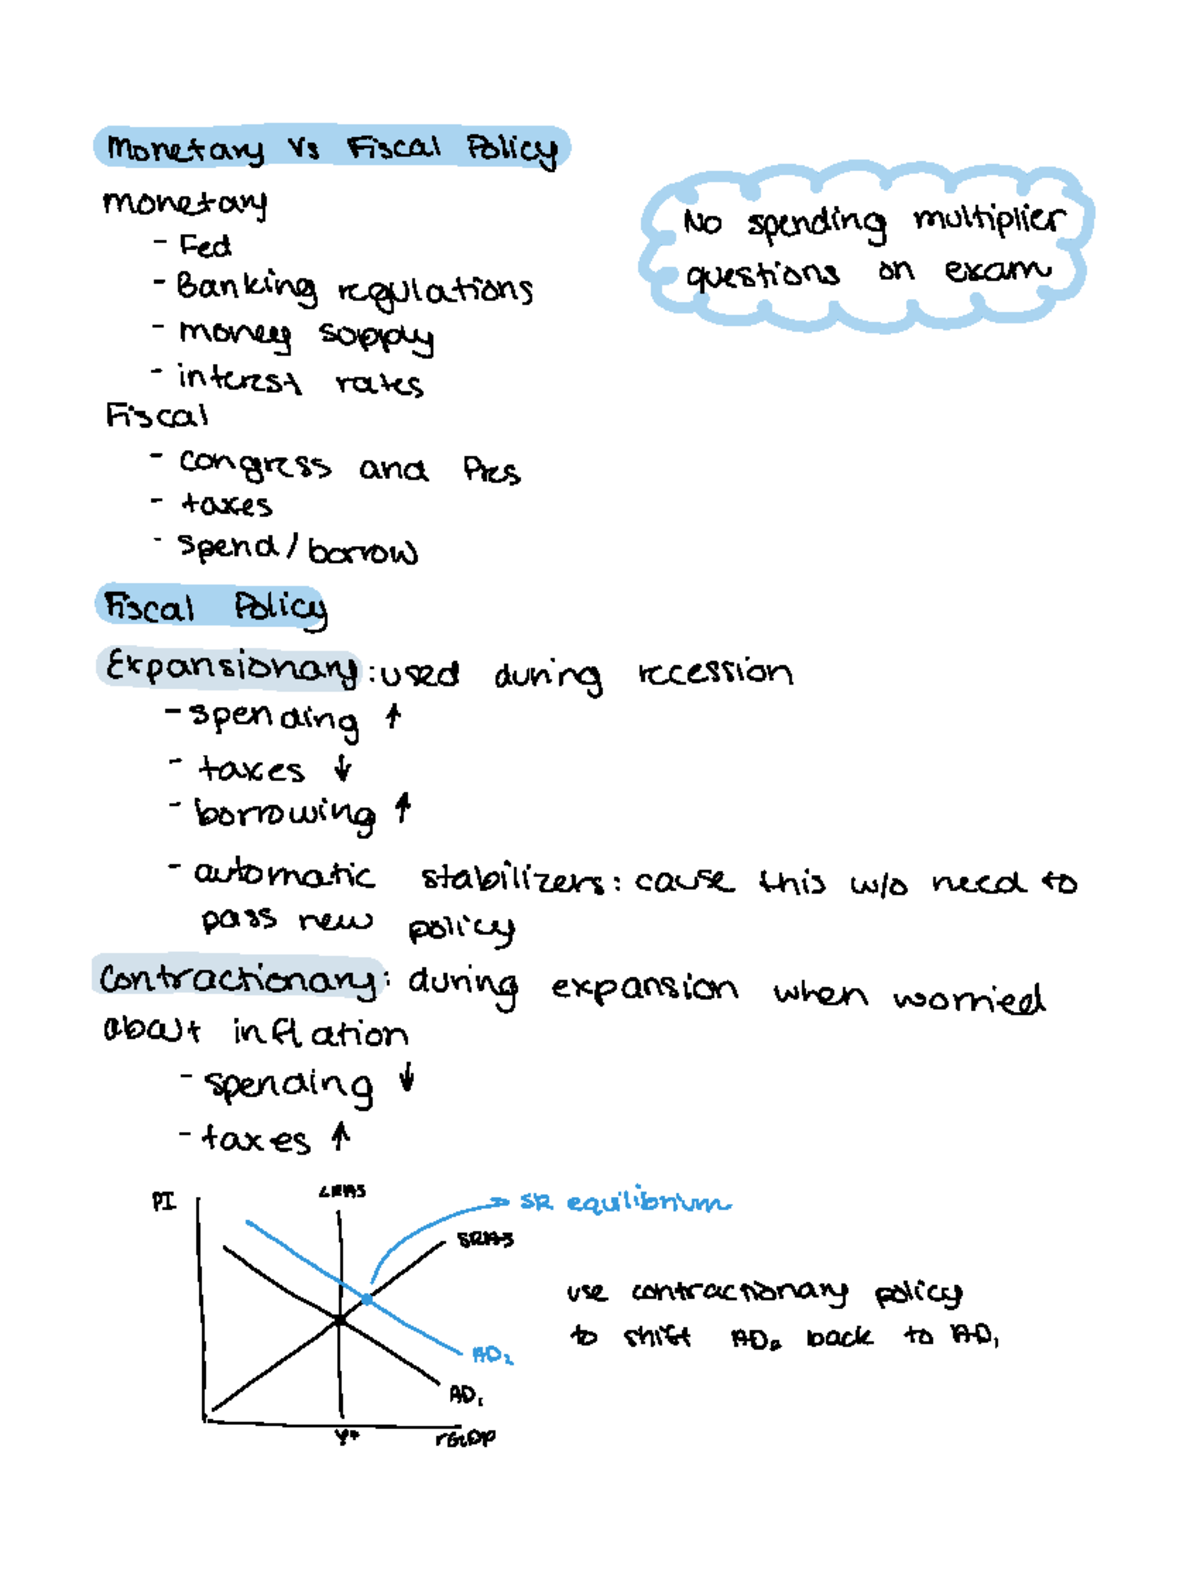 Monetary Vs Fiscal Policy
monetary
- Fed
- Banking regulations
- money supply
- interest rates
No spending multiplier
questions on exam
Fiscal
- congress and Pres
- taxes
- spend/borrow
Fiscal Policy
Expansionary: used during recession
- spending ↑
- taxes ↓
- borrowing ↑
- automatic stabilizers: cause this w/o need to
pass new policy
Contractionary: during expansion when worried
about inflation
- spending ↓
- taxes ↑
PI
LRAS
SR equilibrium
SRAS
use contractionary policy
to shift AD₂ back to AD₁
AD₂
AD₁
Y*
rGDP